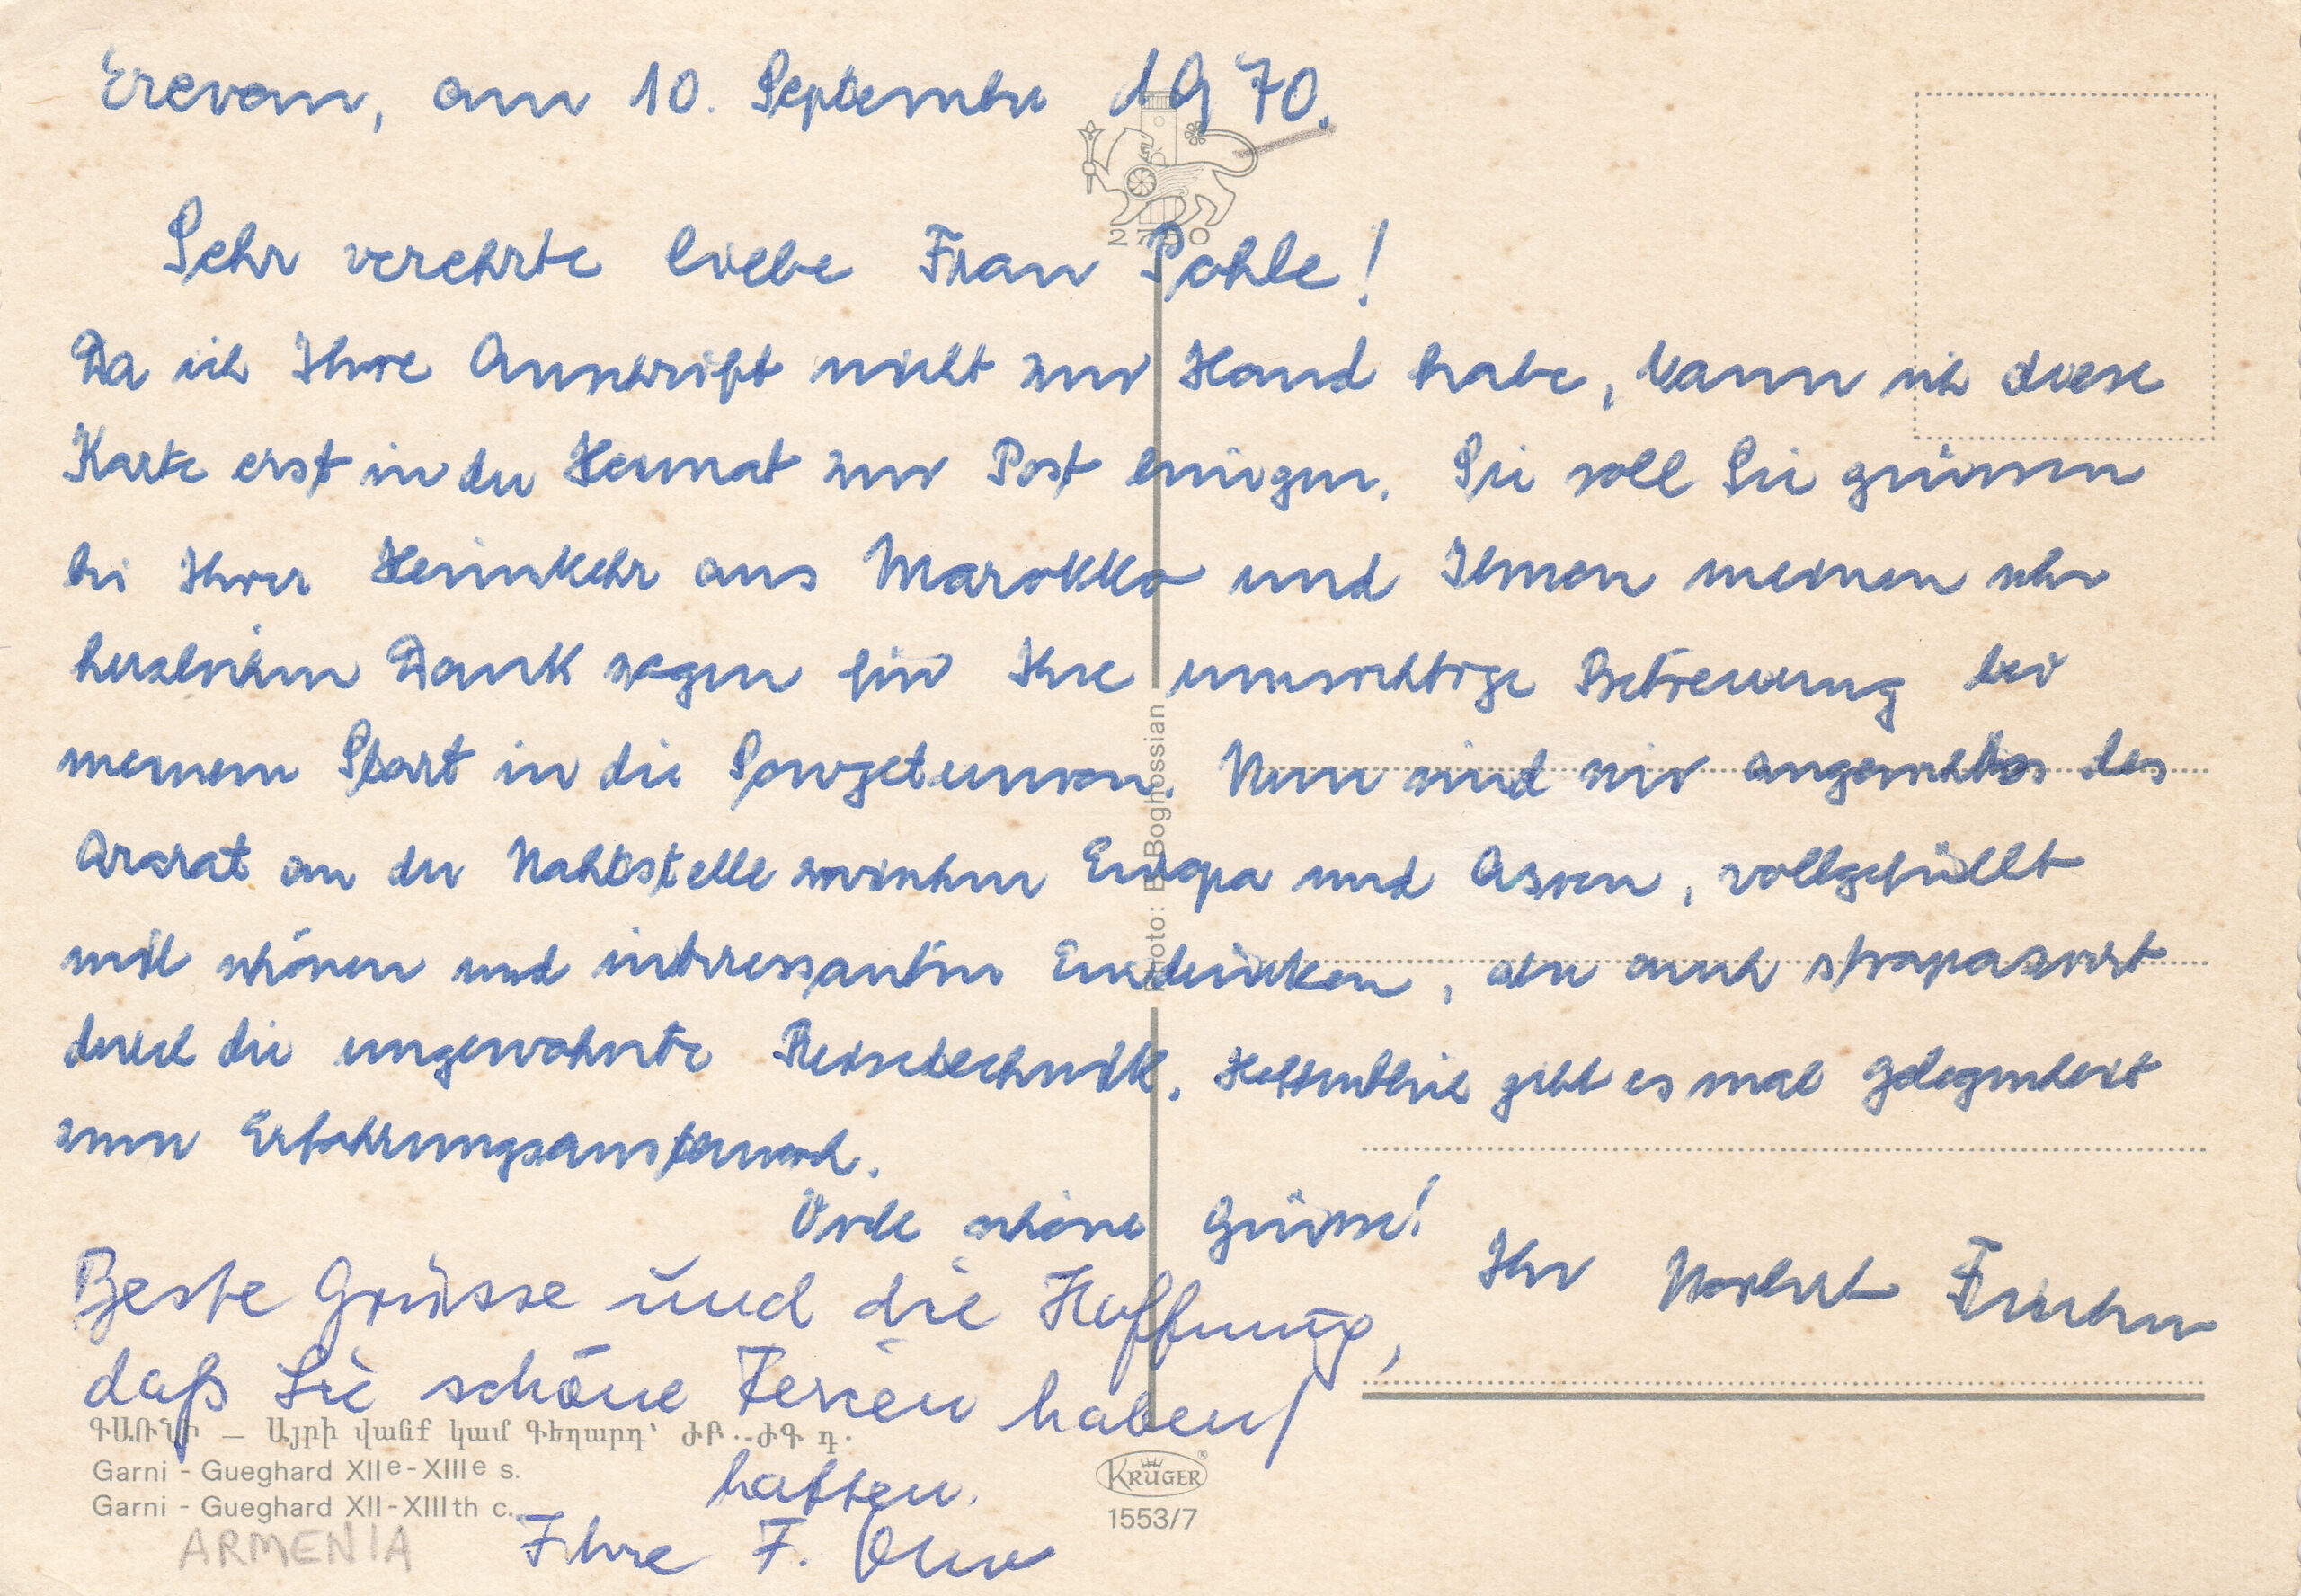 Erevan, am 10. September 1970.
2750
Sehr verehrte liebe Frau Pohle!
Da ich Ihre Anschrift nicht zur Hand habe, kann ich diese
Karte erst in der Heimat zur Post bringen. Sie soll Sie grüssen
bei Ihrer Heimkehr aus Marokko und Ihnen meinen sehr
herzlichen Dank sagen für Ihre umsichtige Betreuung bei
meinem Start in die Sowjetunion. Nun sind wir angesichts des
Ararat an der Nahtstelle zwischen Europa und Asien, vollgefüllt
mit schönen und interessanten Eindrücken, aber auch strapaziert
durch die ungewohnte Reisetechnik. Hoffentlich gibt es mal Gelegenheit
zum Erfahrungsaustausch.
Viele schöne Grüsse!
Ihr Norbert
Beste Grüsse und die Hoffnung,
daß Sie schöne Ferien haben/
hatten.
Ihre F.
Photo: B. Boghossian
ԳԱՌՆԻ — Այրի վանք կամ Գեղարդ՝ ԺԲ.-ԺԳ դ.
Garni - Gueghard XIIe-XIIIe s.
Garni - Gueghard XII-XIIIth c.
ARMENIA
KRÜGER
1553/7